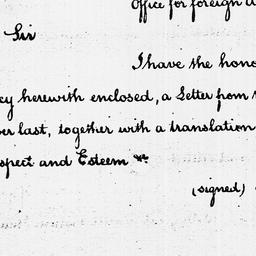 Office for foreign
Sir
I have the hono
ey herewith enclosed, a Letter from
er last, together with a translation
spect and Esteem &c
(signed)